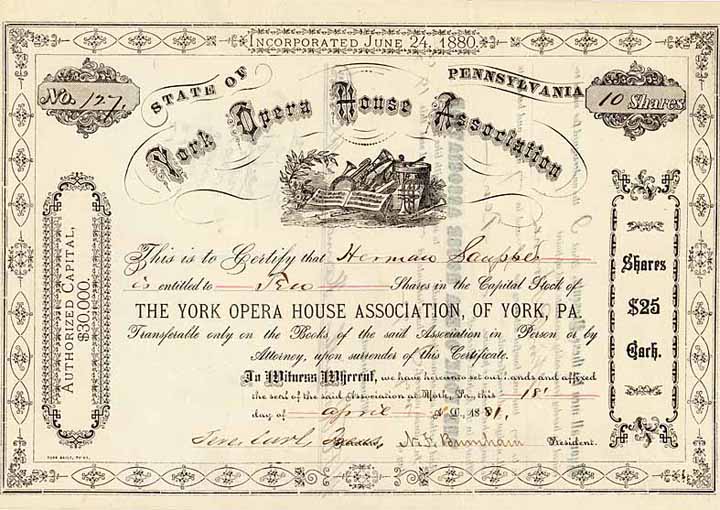 INCORPORATED JUNE 24, 1880.
STATE OF PENNSYLVANIA
No. 127
10 Shares
York Opera House Association
AUTHORIZED CAPITAL, $30,000.
Shares $25 Each.
This is to Certify that Herman
is entitled to Ten Shares in the Capital Stock of
THE YORK OPERA HOUSE ASSOCIATION, OF YORK, PA.
Transferable only on the Books of the said Association in Person or by
Attorney, upon surrender of this Certificate.
In Witness Whereof, we have hereunto set our hands and affixed
the seal of the said Association at York, Pa., this 18'
day of april A. D. 1881.
Burnham President.